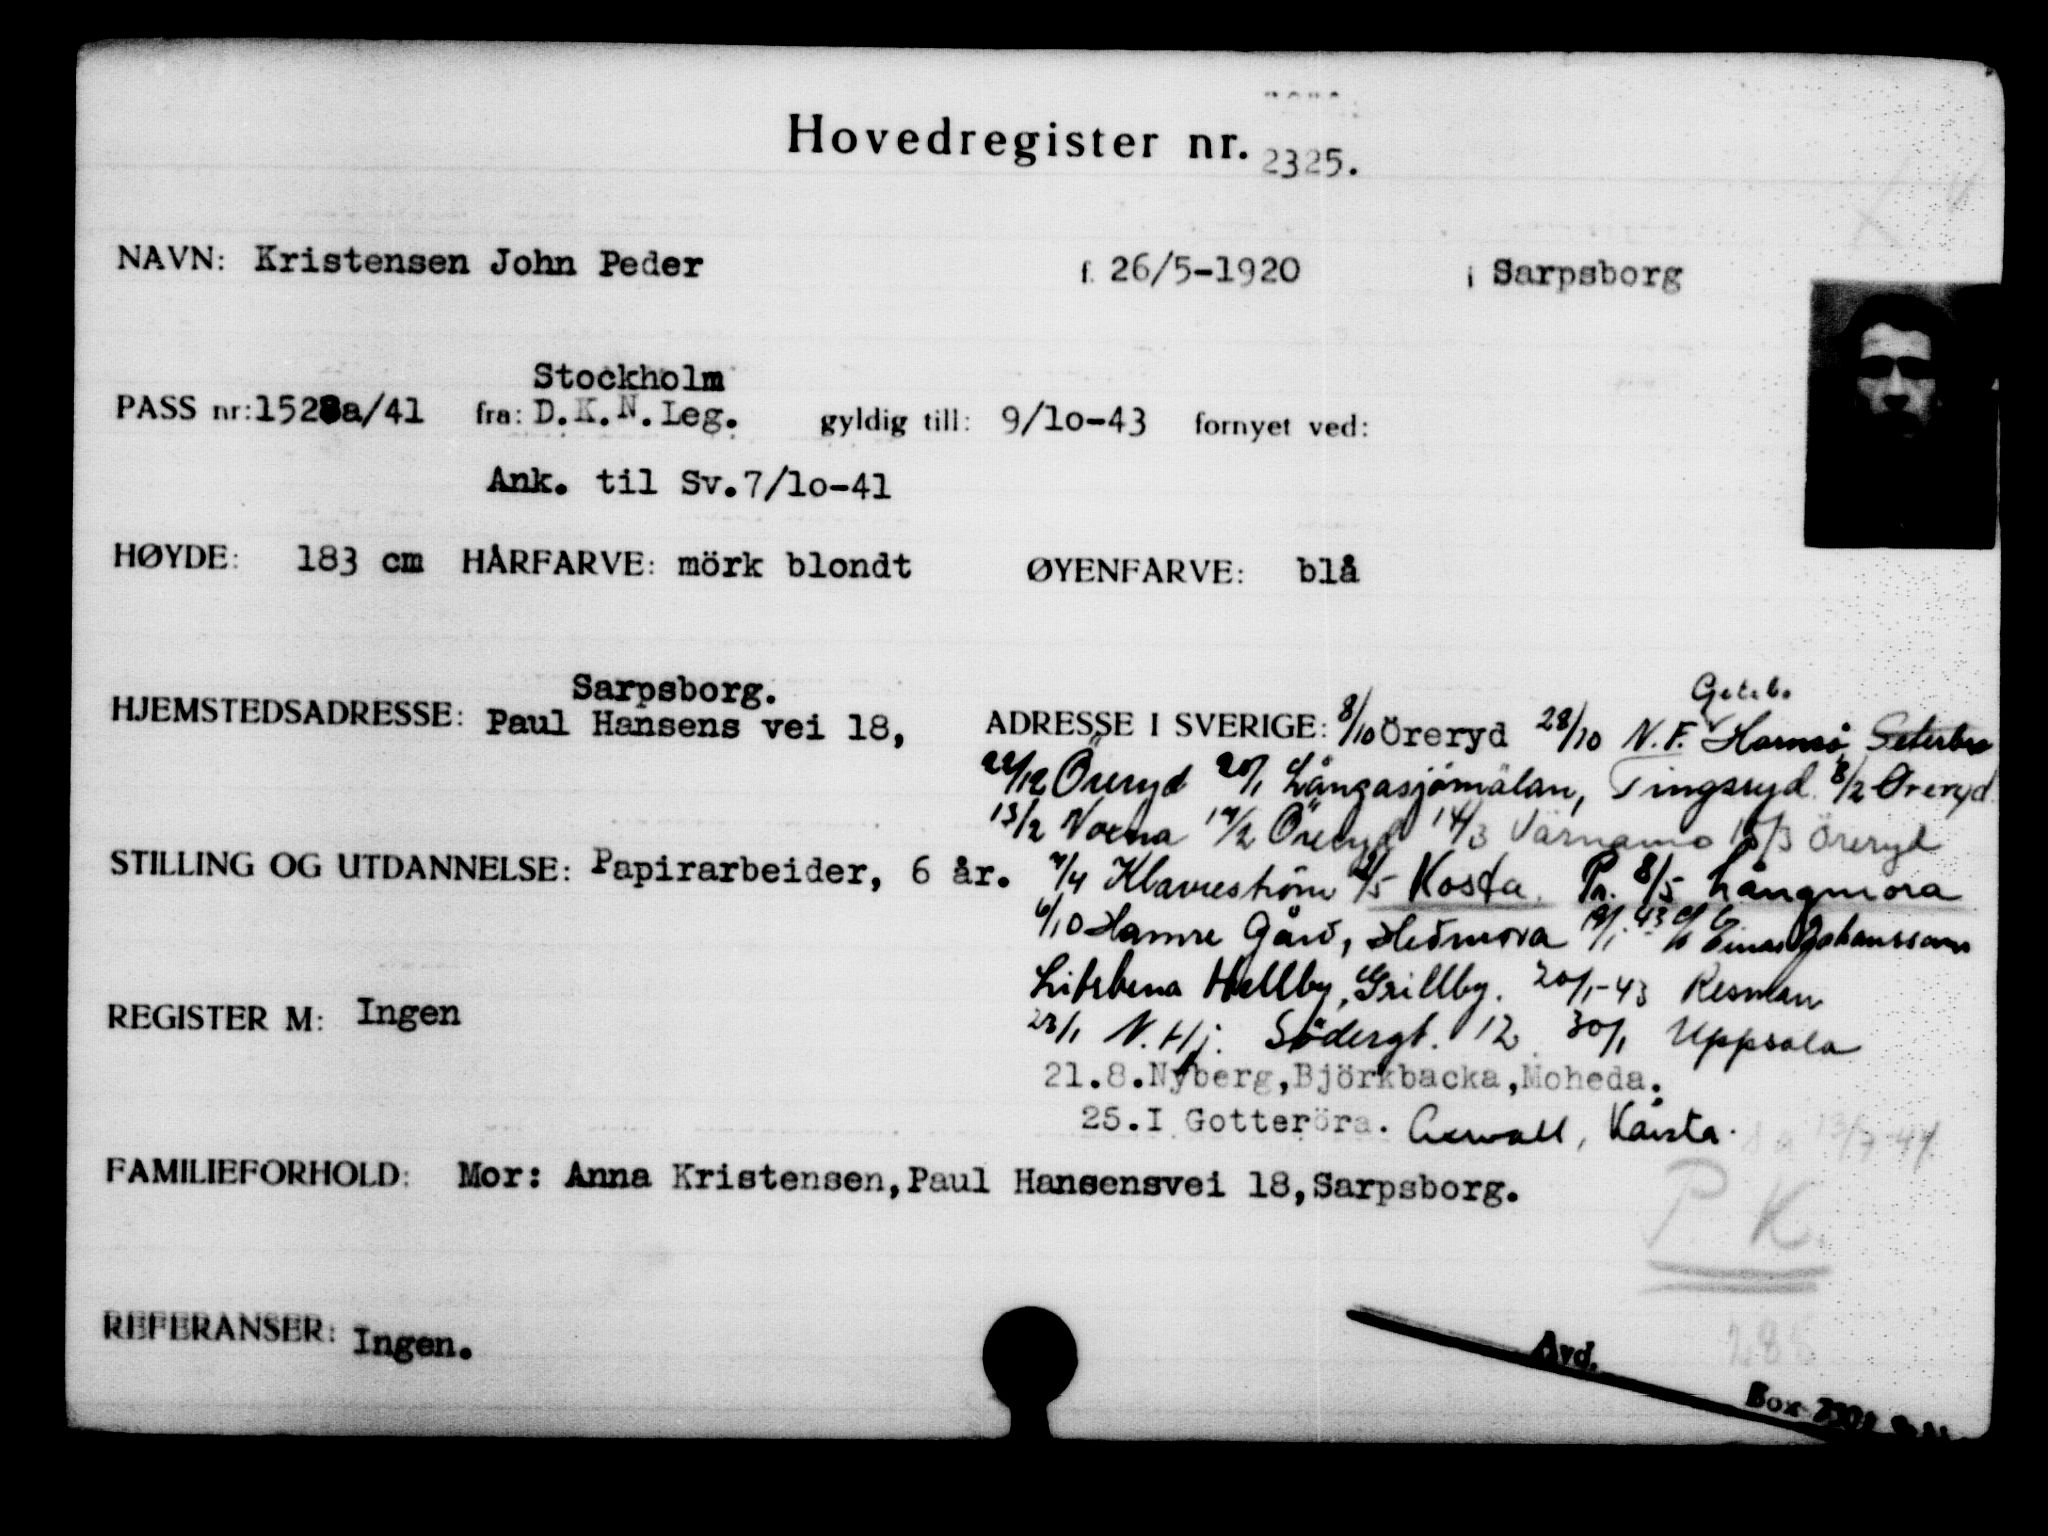 Hovedregister nr. 2325.
NAVN: Kristensen John Peder f. 26/5-1920 i Sarpsborg
Stockholm
PASS nr: 1528a/41 fra: D.K.N.Leg. gyldig till: 9/lo-43 fornyet ved:
Ank. til Sv.7/lo-41
HØYDE: 183 cm HÅRFARVE: mörk blondt ØYENFARVE: blå
Sarpsborg.
HJEMSTEDSADRESSE: Paul Hansens vei 18,
ADRESSE I SVERIGE: 8/10 Öreryd 28/10 N.F. Hamsö,
22/12 Öreryd 20/1 Långasjömålan, Tingsryd. 8/2 Öreryd
13/2 Norna 19/2 Öreryd 14/3 Värnamo 15/3 Öreryd
STILLING OG UTDANNELSE: Papirarbeider, 6 år.
Klavreström 2/5 Kosta. Pr. 8/5 Långmora
6/10 Hamre Gård, Hedmora 19/1-43 c/o Einar Johansson
Hällby, Grillby. 20/1-43 Resman
REGISTER M: Ingen
23/1 N.Hj. Södergt. 12 30/1 Uppsala
21.8.Nyberg,Björkbacka,Moheda.
25.I Gotteröra. Axwall, Kårsta.
13/7-44
FAMILIEFORHOLD: Mor: Anna Kristensen,Paul Hansensvei 18,Sarpsborg.
P.K.
REFERANSER: Ingen.
Avd.
Box